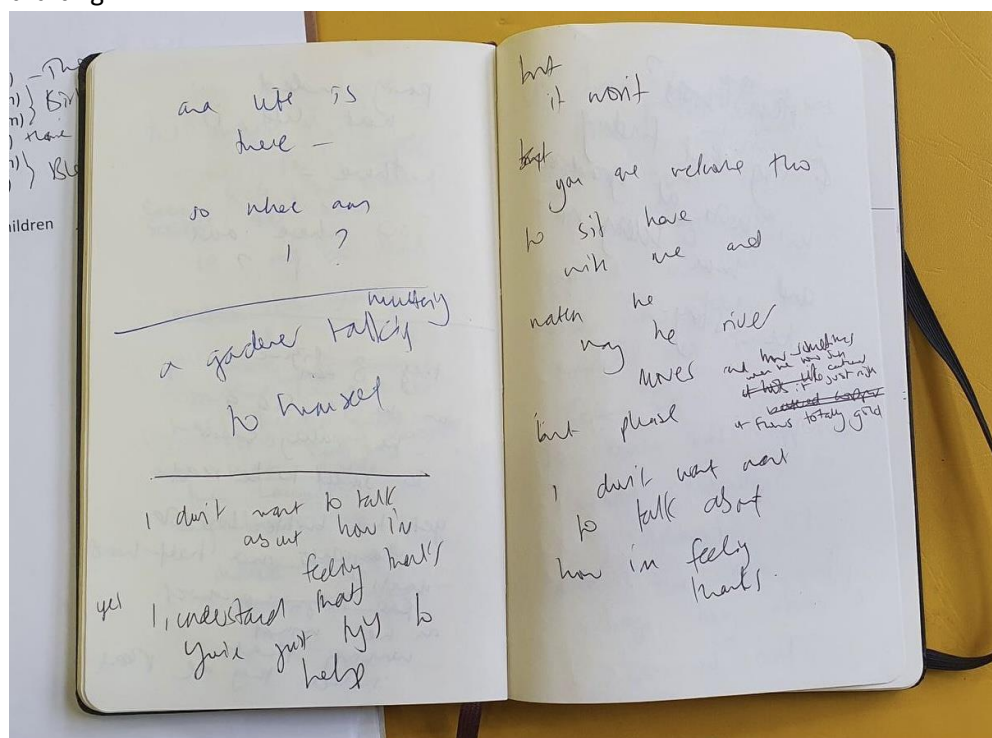 and life is
there –
so where am
I ?
muttering
a gardener talking
to himself
I don't want to talk
about how I'm
feeling thanks
yes I understand that
you're just trying to
help
but
it won't
but
you are welcome tho
to sit here
with me and
watch the
way the river
moves and how sometimes
when the sun catches
it just right
it flows totally gold
but please
I don't want
to talk about
how I'm feeling
thanks.
ildren